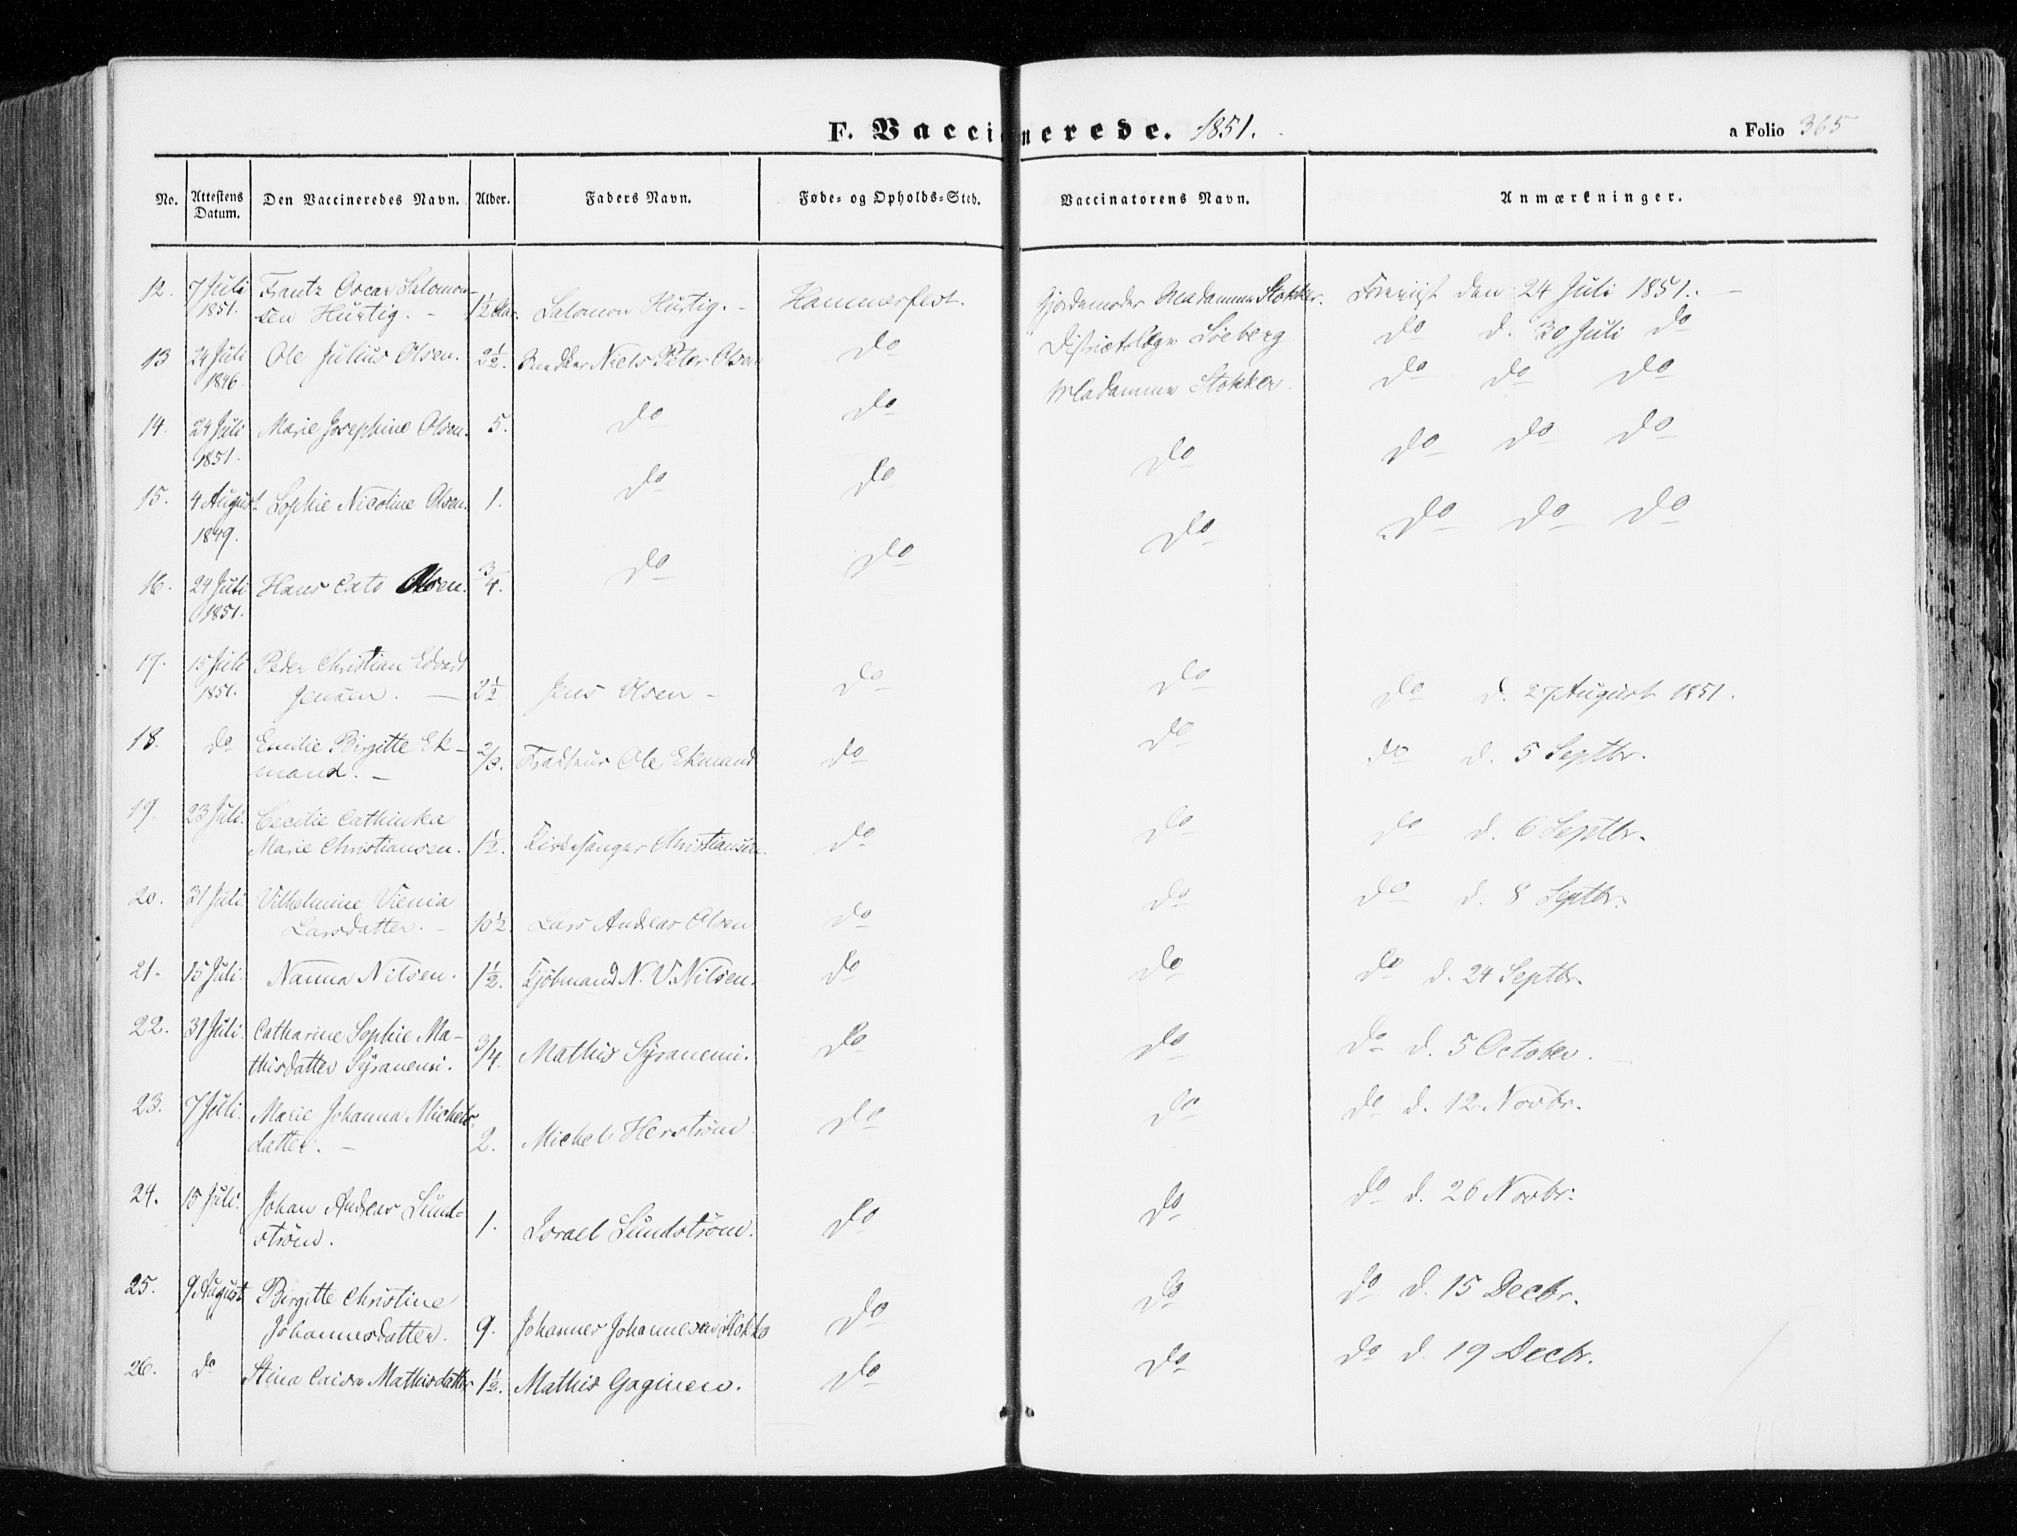 F. Vaccinerede. 1851.
a Folio 365
No. Attestens Datum. Den Vaccineredes Navn. Alder. Faders Navn. Føde- og Opholds-Sted. Vaccinatorens Navn. Anmærkninger.
12. 7 Juli Frantz Oscar Salomon-
1851. sen Hurtig. - 1½ Aar. Salomon Hurtig. - Hammerfest. Gjordemoder Madamme Stokker. Foreviist den 24 Juli 1851. -
13 24 Juli Ole Julius Olsen. 2½. Niels Peter Olsen do Districtslæge Loeberg do d. 30 Juli do
1846.
Madamme Stokker. do do do
14. 24 Juli Marie Josephine Olsen. 5. do do do do do do
1851.
15. 4 August Sophie Nicoline Olsen. 1. do do do do do do
1849.
16. 24 Juli Hans Cato Olsen. 3/4. do do
1851.
17. 15 Juli Peder Christian Edvard
1851. Jensen. - 2½ Jens Olsen - do do do d. 27 August 1851.
18. do Emilie Birgitte Ek-
mand. - 2/3. Ole Ekmand do do do d. 5 Septbr.
19. 23 Juli. Cecilie Cathinka
Marie Christiansen. 1½. Kirkesanger Christiansen. do do do d. 6 Septbr.
20. 31 Juli. Vilhelmine Vienia
Larsdatter. - 10½ Lars Andreas Olsen do do do d. 8 Septbr.
21. 15 Juli. Nanna Nilsen. 1½. Kjøbmand N. V. Nilsen. do do do d. 24 Septbr.
22. 31 Juli. Catharine Sophie Ma-
thisdatter Syranemi. 3/4. Mathis Syranemi. do do do d. 5 October.
23. 7 Juli. Marie Johanna Michels-
datter. - 2. Michel Herström do do do d. 12 Novbr.
24. 15 Juli. Johan Andreas Lund-
ström. 1. Israel Lundström. do do do d. 26 Novbr.
25. 9 August Birgitte Christine
Johannesdatter. 9. Johannes Johannesen do do do d. 15 Decbr.
26. do Stina Caisa Mathisdatter 1½. Mathis do do do d. 19 Decbr.